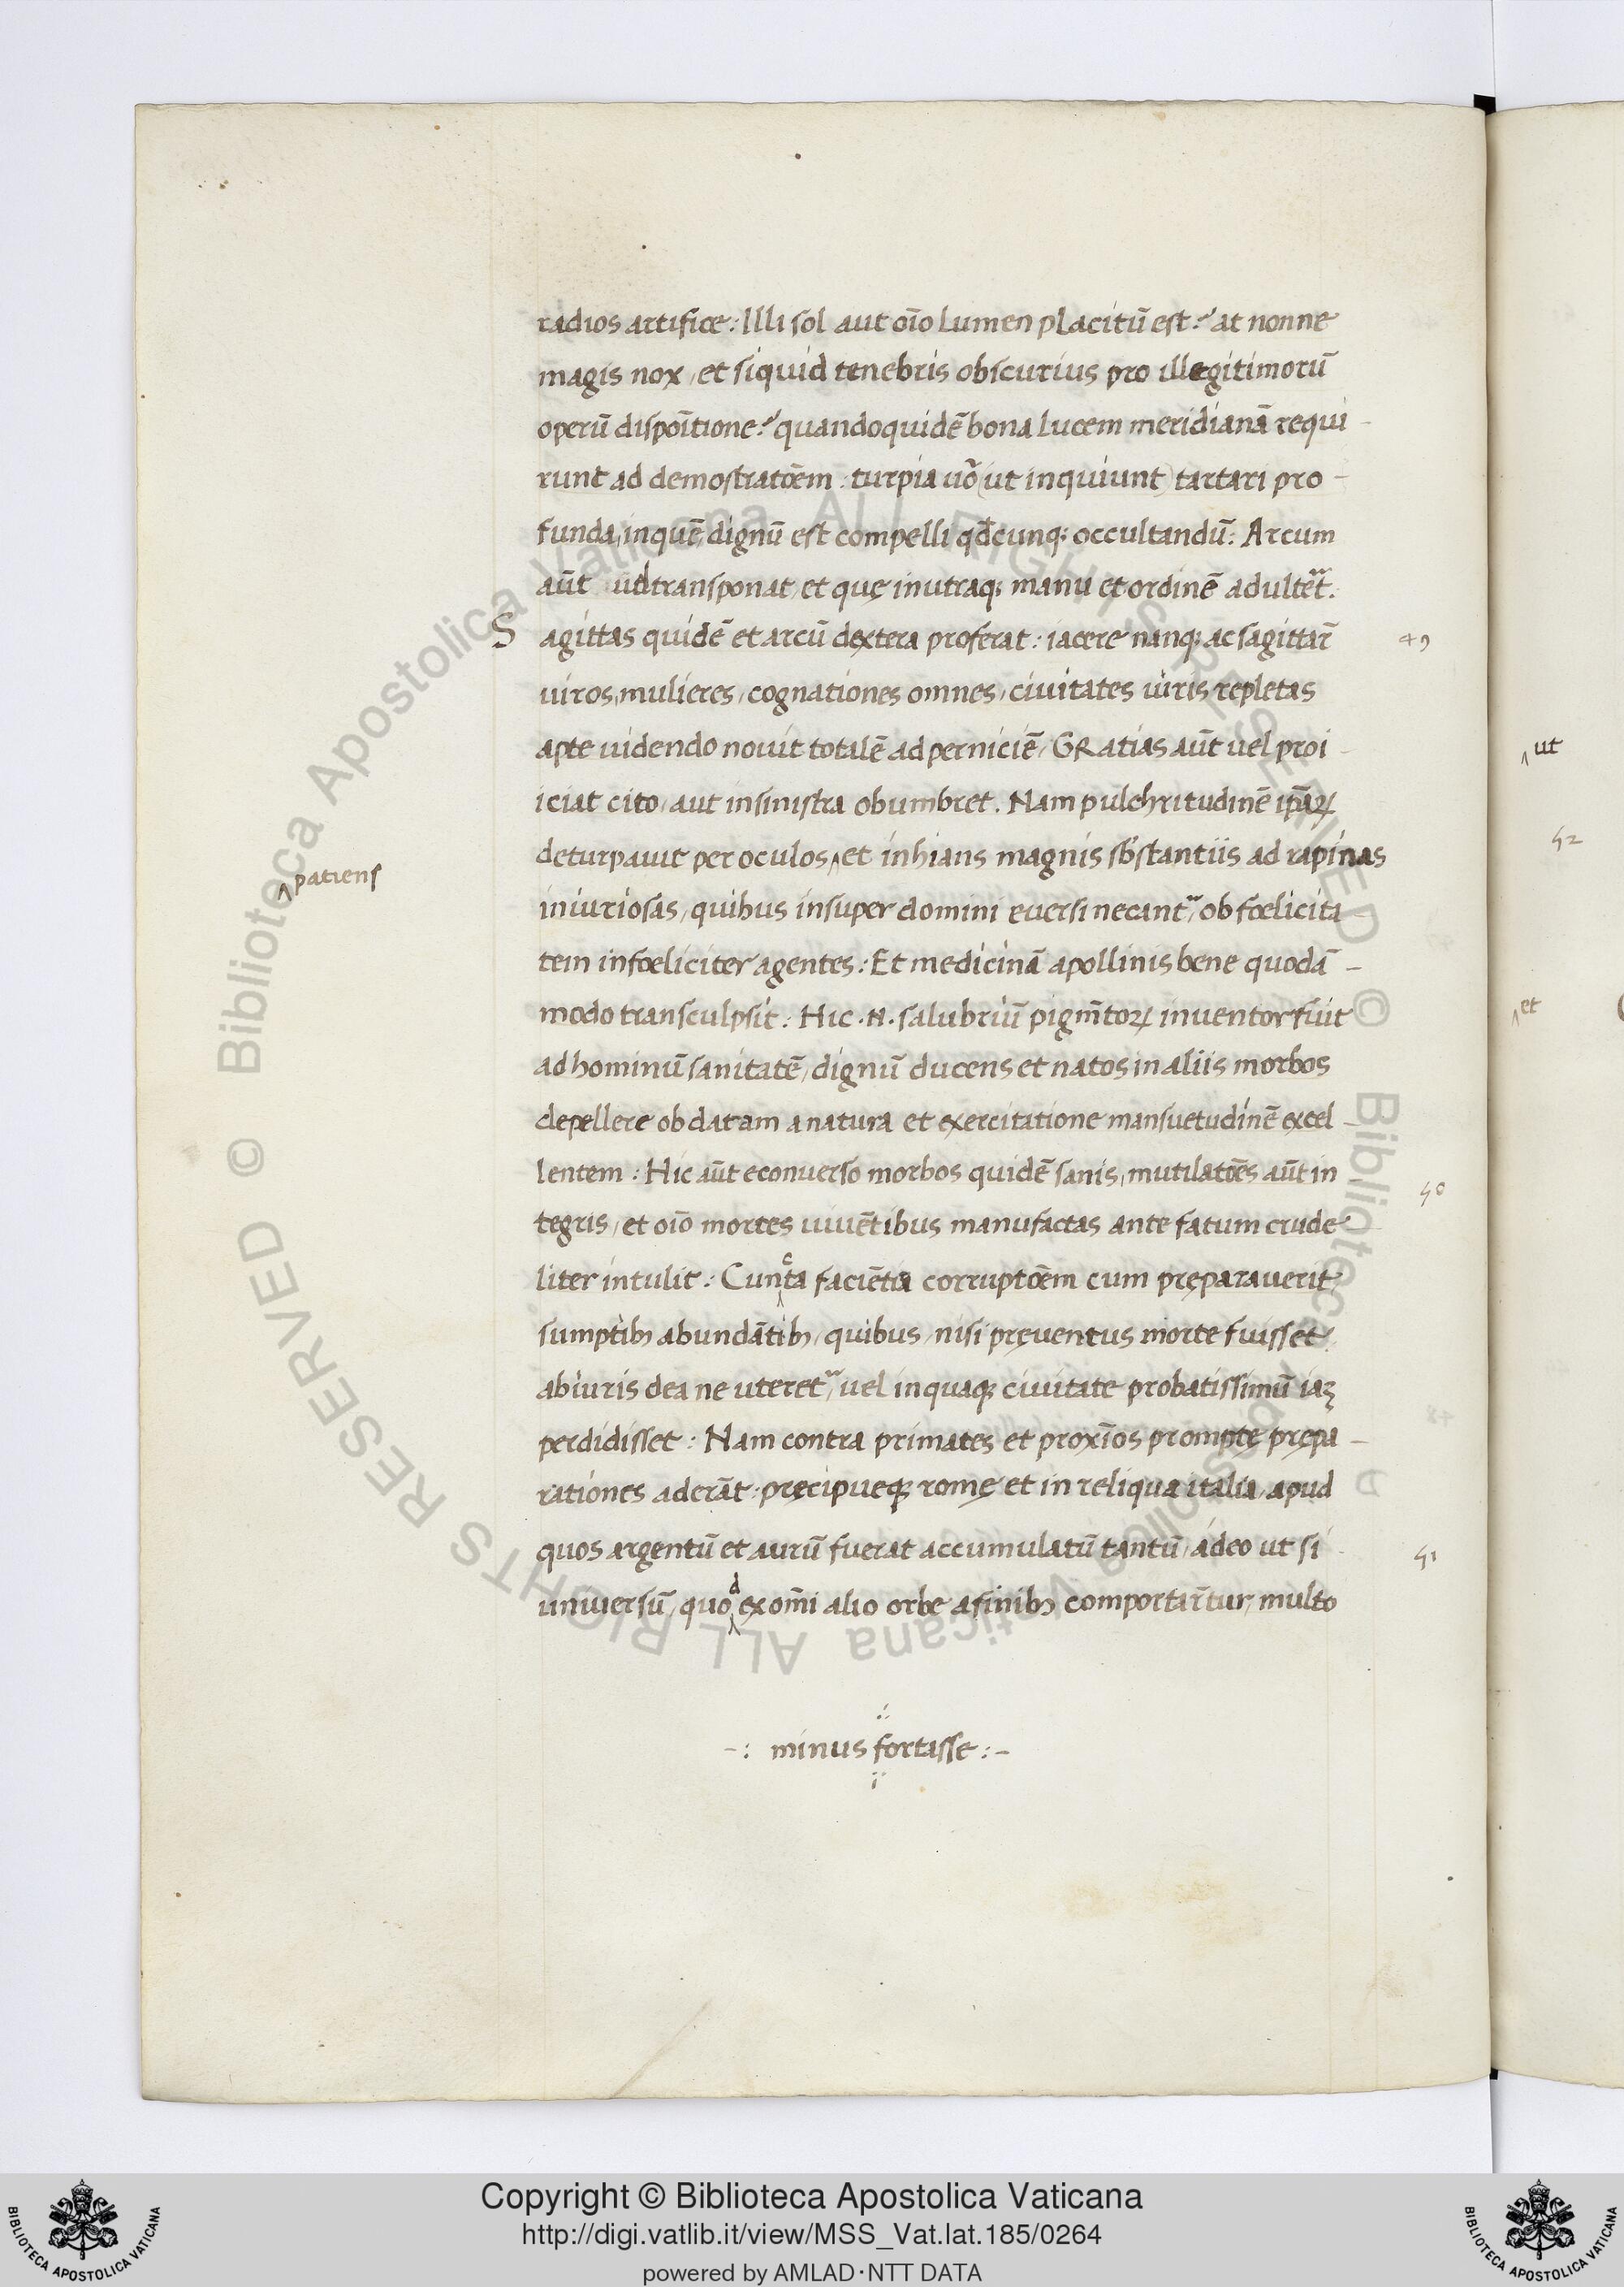 radios artifice: Illi sol aut oĩo lumen placitũ est? at nonne
magis nox, et siquid tenebris obscurius pro illegitimorũ
operũ dispoĩtione? quandoquidẽ bona lucem meridianã requi-
runt ad demostratõem: turpia uõ (ut inquiunt) tartari pro-
funda, inquẽ dignũ est compelli qđcunq; occultandũ: Arcum
aũt transponat, et quę inutraq; manu et ordinẽ adulteť.
Sagittas quidẽ et arcũ dextera proferat: iacere nanq; ac sagittar̃ 49
uiros, mulieres, cognationes omnes, ciuitates uiris repletas
apte uidendo nouit totalẽ ad perniciẽ, GRatias aũt uel proi-
iciat cito, aut insinistra obumbret. Nam pulchritudinẽ ip̃aꝝ
deturpauit per oculos, ^ et inhians magnis sb̃stantiis ad rapinas
^patiens
iniuriosas, quibus insuper domini euersi necant᷑, ob fœlicita
tem infœliciter agentes: Et medicinã apollinis bene quodã-
modo transculpsit: Hic .N. salubriũ pigm̃toꝝ inuentor fuit
ad hominũ sanitatẽ, dignũ ducens et natos in aliis morbos
depellere ob datam a natura et exercitatione mansuetudinẽ excel-
lentem: Hic aũt econuerso morbos quidẽ sanis, mutilatõẽs aũt in
tegris, et oĩo mortes uiuẽtibus manufactas ante fatum crude 50
liter intulit: Cuncta faciẽtia corruptõem cum pręparauerit,
sumptibꝫ abundãtibꝫ, quibus, nisi pręuentus morte fuisset,
abiuris dea ne uteret᷑, uel inquaq; ciuitate probatissimũ iaꝫ
perdidisset: Nam contra primates et proxĩos prompte prępa-
rationes aderãt: pręcipueq; romę et in reliqua italia, apud
quos argentũ et aurũ fuerat accumulatũ tantũ, adeo ut si 51
uniuersũ, quod ex om̃i alio orbe afinibꝫ comportar̃tur, multo
-: minus fortasse :-
^ut
52
^et
Copyright © Biblioteca Apostolica Vaticana
http://digi.vatlib.it/view/MSS_Vat.lat.185/0264
powered by AMLAD·NTT DATA